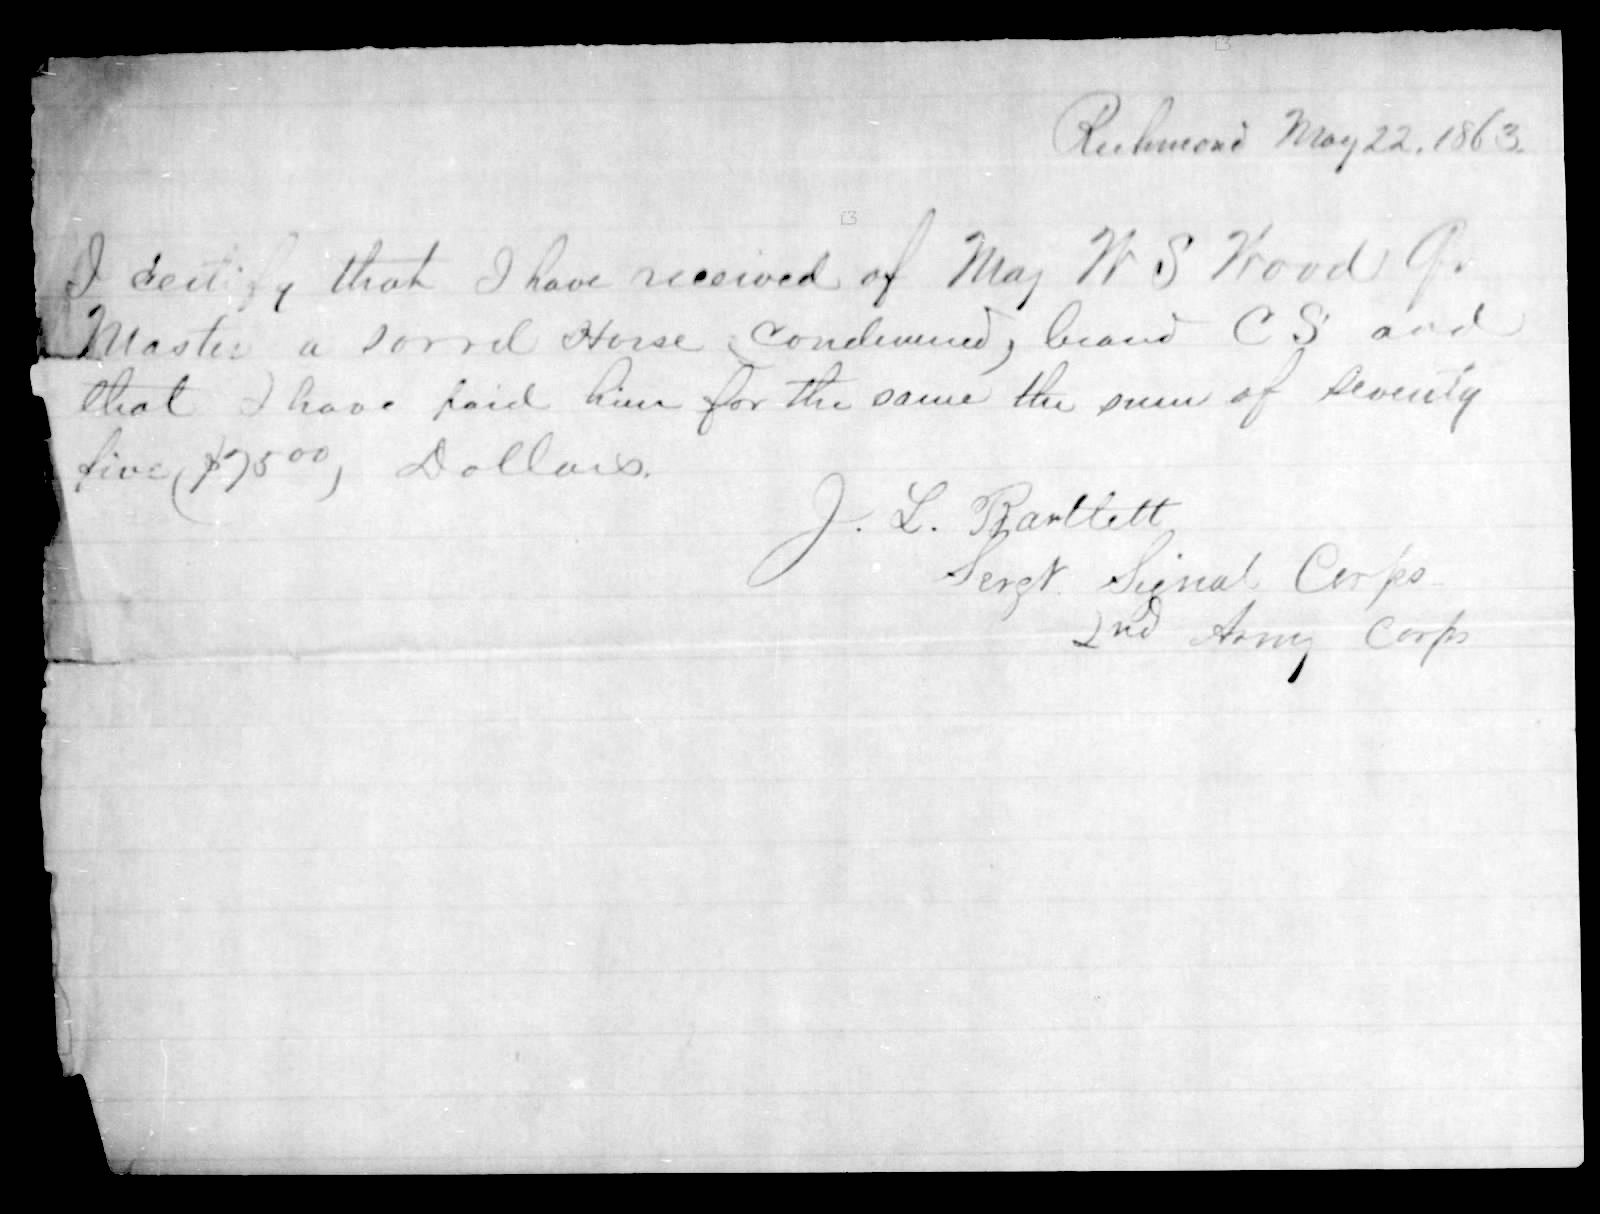 Richmond May 22. 1863.
I certify that I have received of Maj W S Wood Qr
Master a sorrel Horse (Condemned) brand C S and
that I have paid him for the same the sum of seventy
five ($75 00) Dollars.
J. L. Bartlett
Sergt. Signal Corps
2nd Army Corps